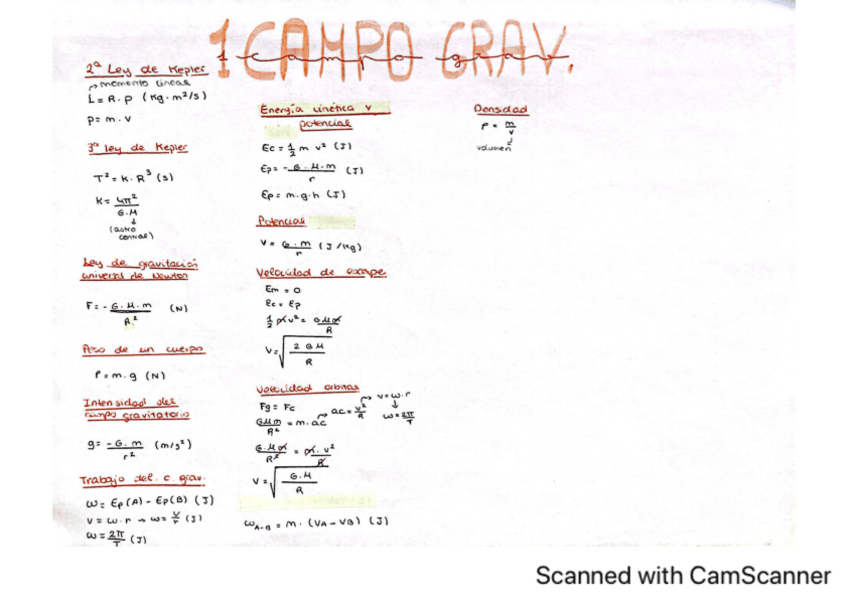 1 CAMPO GRAV.
campo grav.
2ª Ley de Kepler
→ momento lineal
L = R · p (kg · m²/s)
p = m · v
3ª ley de Kepler
T² = K · R³ (s)
K = 4π² / G · M
(astro central)
Ley de gravitación
universal de Newton
F = - G · M · m / R² (N)
Peso de un cuerpo
P = m · g (N)
Intensidad del
campo gravitatorio
g = - G · m / r² (m/s²)
Trabajo del c. grav.
W = Ep(A) - Ep(B) (J)
v = ω · r → ω = v/r (J)
ω = 2π/T (J)
Energía cinética y
potencial
Ec = 1/2 m v² (J)
Ep = - G · M · m / r (J)
Ep = m · g · h (J)
Potencial
V = G · m / r (J/kg)
Velocidad de escape
Em = 0
Ec = Ep
1/2 m v² = G M m / R
v = √(2 G M / R)
Velocidad orbital
Fg = Fc
G M m / R² = m · ac → ac = v²/R → v = ω · r
↓ ω = 2π/T
G · M · m / R² = m · v² / R
v = √(G · M / R)
W A-B = m · (VA - VB) (J)
Densidad
ρ = m / v
volumen
Scanned with CamScanner